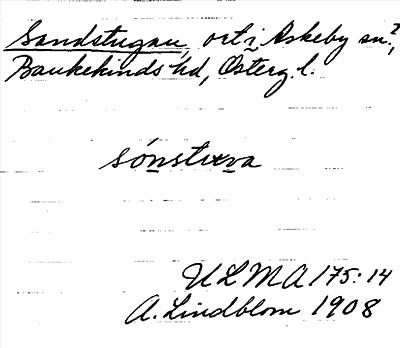 Sandstugan, ort i Askeby sn?,
Bankekinds hd, Österg. l.
sónstuva
ULMA 175:14
A. Lindblom 1908